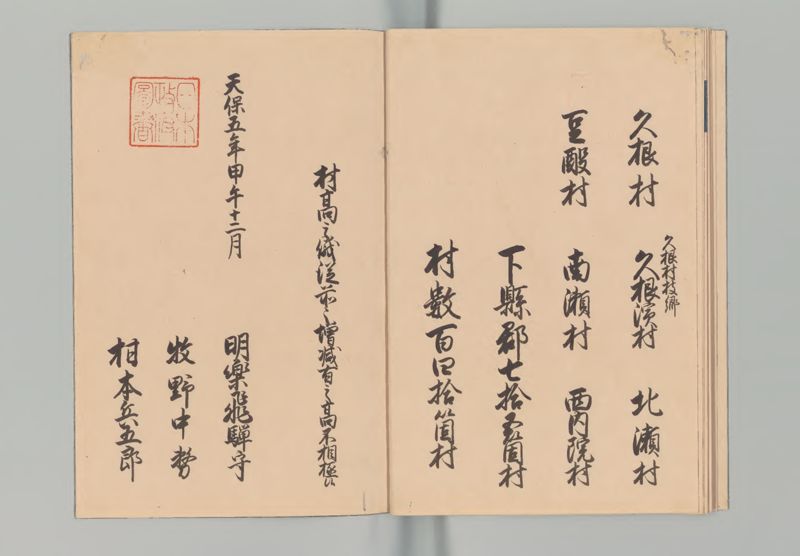 久根村
久根村枝郷
久根濵村
北瀬村
豆酘村
南瀬村
西内院村
下縣郡七拾壱箇村
村數百四拾箇村
村高之儀従前々増減有之高不相極候
天保五年甲午十二月
明樂飛騨守
牧野中務
村本兵五郎
日本
政府
圖書